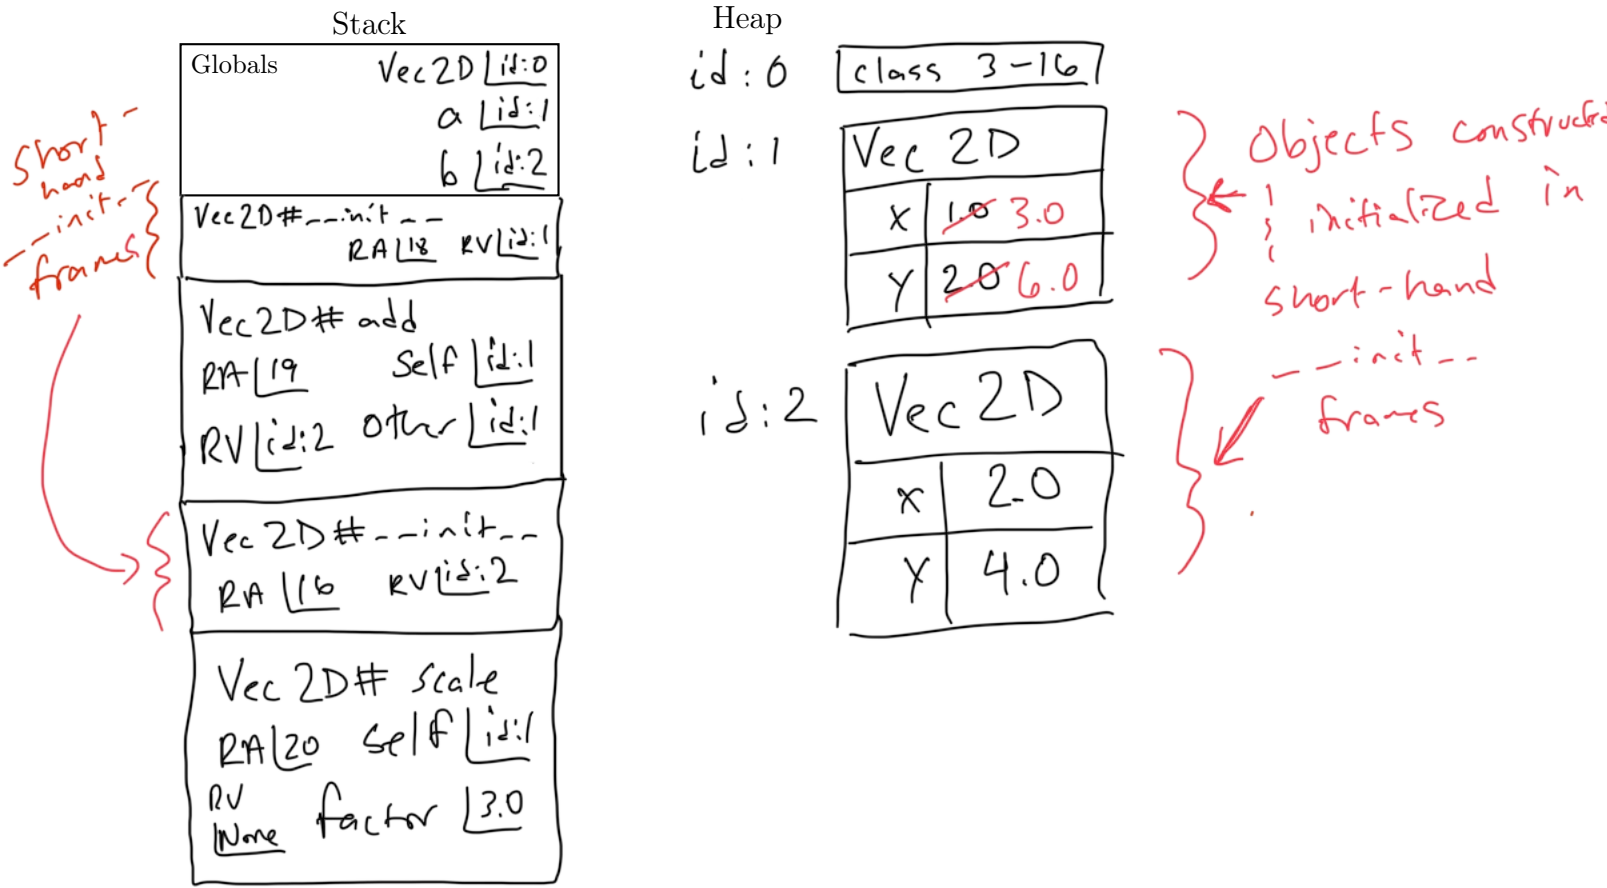 Stack
Globals
Vec2D id:0
a id:1
b id:2
short-
hand
__init__
frames
Vec2D#__init__
RA 18 RV id:1
Vec2D# add
RA 19 self id:1
RV id:2 other id:1
Vec2D#__init__
RA 16 RV id:2
Vec2D# scale
RA 20 self id:1
RV
None factor 3.0
Heap
id:0 class 3-16
id:1 Vec2D
x 1.0 3.0
y 2.0 6.0
id:2 Vec2D
x 2.0
y 4.0
Objects constructed
initialized in
short-hand
__init__
frames